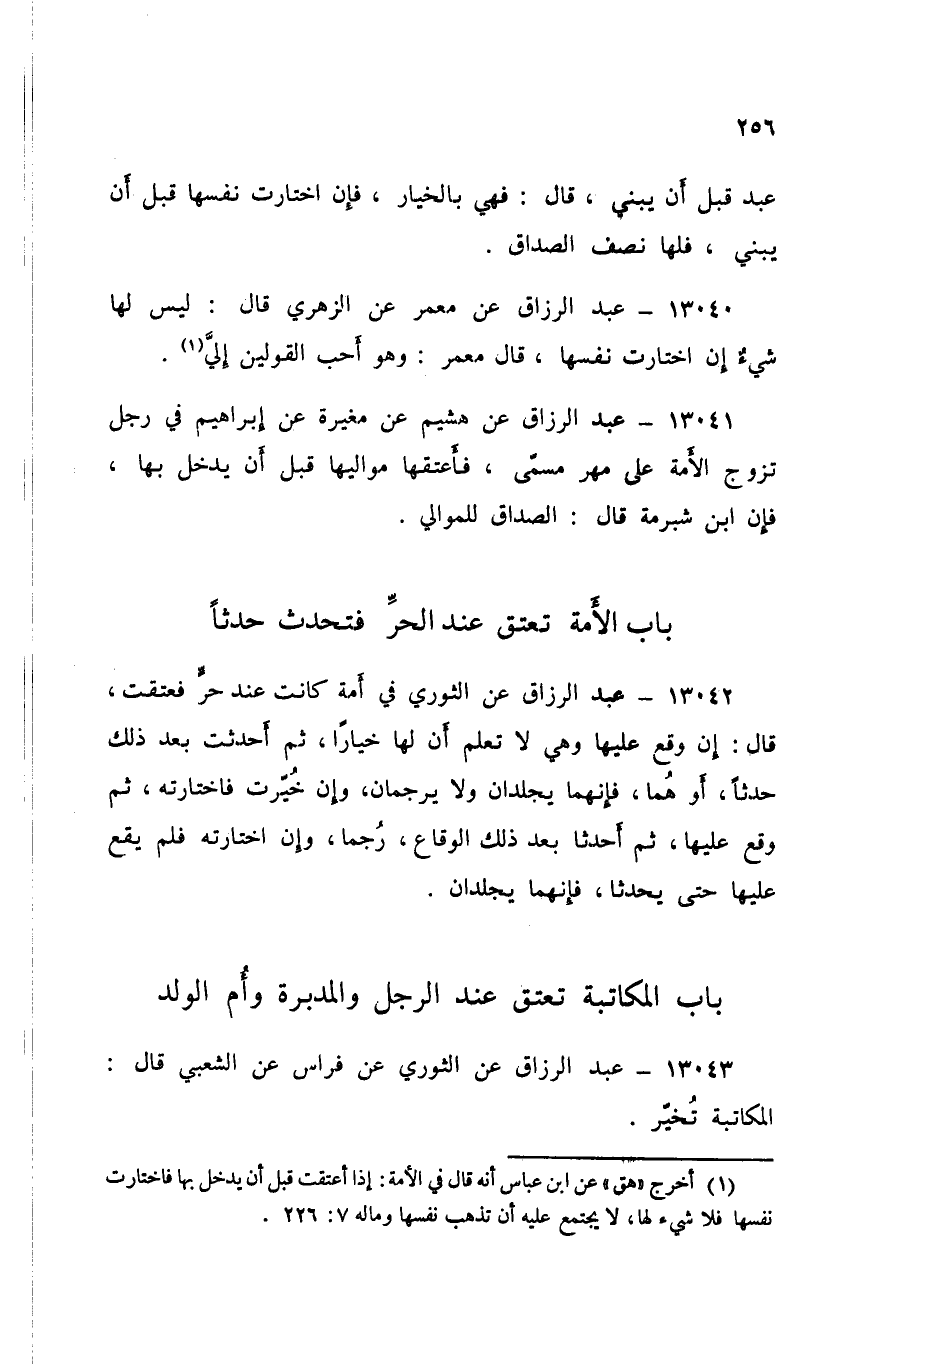 ٢٥٦
عبد قبل أن يبني ، قال : فهي بالخيار ، فإن اختارت نفسها قبل أن
يبني ، فلها نصف الصداق .
١٣٠٤٠ – عبد الرزاق عن معمر عن الزهري قال : ليس لها
شيءٌ إن اختارت نفسها ، قال معمر : وهو أَحب القولين إليَّ(١) .
١٣٠٤١ – عبد الرزاق عن هشيم عن مغيرة عن إبراهيم في رجل
تزوج الأَمة على مهر مسمّى ، فأَعتقها مواليها قبل أَن يدخل بها ،
فإن ابن شبرمة قال : الصداق للموالي .
باب الأَمة تعتق عند الحرِّ فتحدث حدثاً
١٣٠٤٢ – عبد الرزاق عن الثوري في أَمة كانت عند حرٍّ فعتقت ،
قال : إن وقع عليها وهي لا تعلم أَن لها خيارًا ، ثم أَحدثت بعد ذلك
حدثاً ، أو هُما ، فإنهما يجلدان ولا يرجمان، وإن خُيِّرت فاختارته ، ثم
وقع عليها ، ثم أَحدثا بعد ذلك الوقاع ، رُجما ، وإن اختارته فلم يقع
عليها حتى يحدثا ، فإنهما يجلدان .
باب المكاتبة تعتق عند الرجل والمدبرة وأُم الولد
١٣٠٤٣ – عبد الرزاق عن الثوري عن فراس عن الشعبي قال :
المكاتبة تُخيّر .
(١) أخرج «هق» عن ابن عباس أنه قال في الأمة : إذا أعتقت قبل أن يدخل بها فاختارت
نفسها فلا شيء لها، لا يجتمع عليه أن تذهب نفسها وماله ٧: ٢٢٦ .